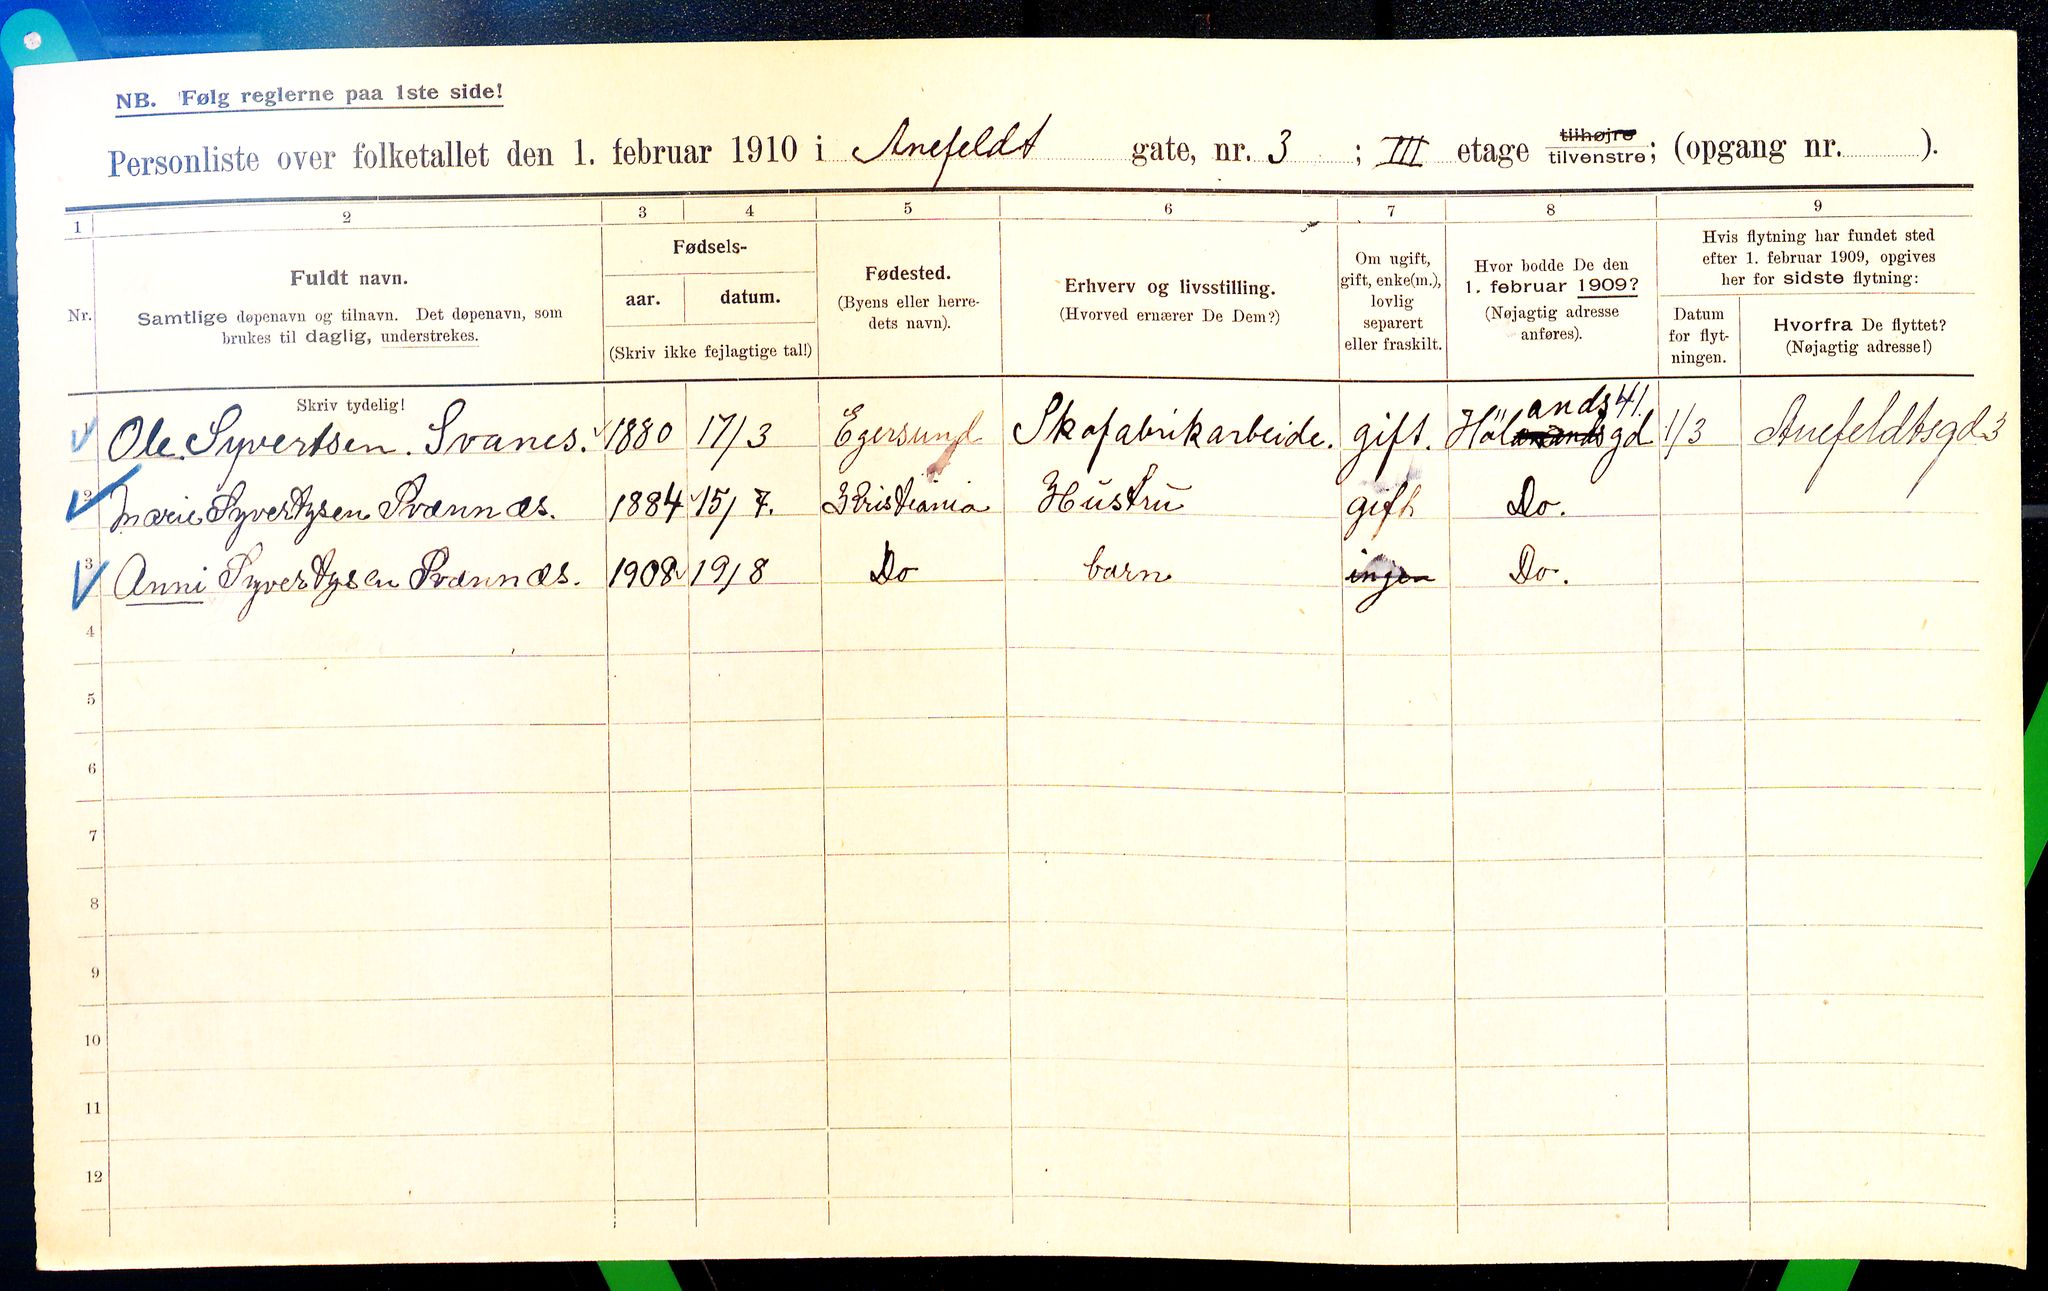 NB. Følg reglerne paa 1ste side!
Personliste over folketallet den 1. februar 1910 i Anefeldt gate, nr. 3 ; III etage tilhøjre tilvenstre; (opgang nr. ).
1 2 3 4 5 6 7 8 9
Nr.
Fuldt navn.
Samtlige døpenavn og tilnavn. Det døpenavn, som
brukes til daglig, understrekes.
Fødsels-
aar. datum.
(Skriv ikke fejlagtige tal!)
Fødested.
(Byens eller herre-
dets navn).
Erhverv og livsstilling.
(Hvorved ernærer De Dem?)
Om ugift,
gift, enke(m.),
lovlig
separert
eller fraskilt.
Hvor bodde De den
1. februar 1909?
(Nøjagtig adresse
anføres).
Hvis flytning har fundet sted
efter 1. februar 1909, opgives
her for sidste flytning:
Datum
for flyt-
ningen.
Hvorfra De flyttet?
(Nøjagtig adresse!)
Skriv tydelig!
1 Ole Syvertsen. Svanes. 1880 17/3 Egersund Skofabrikarbeide. gift. Hölandsgd 41. 1/3 Anefeldtsgd 3
2 Marie Syvertysen Svænnæs. 1884 15/7. Kristiania Hustru gift Do.
3 Anni Syvertysen Svænnæs. 1908 19/8 Do barn ingen Do.
4
5
6
7
8
9
10
11
12